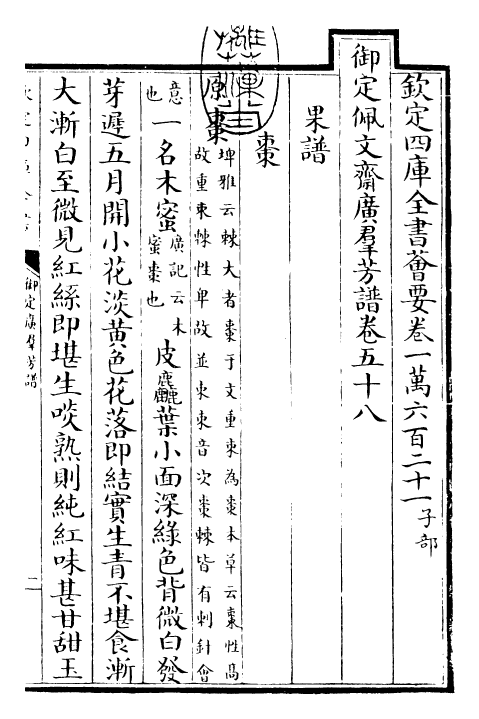 欽定四庫全書薈要卷一萬六百二十一子部
御定佩文齋廣羣芳譜卷五十八
果譜
棗
原棗埤雅云棘大者棗于文重朿為棗本草云棗性高
故重朿棘性卑故並朿朿音次棗棘皆有刺針會
意也一名木蜜廣記云木蜜棗也皮麤葉小面深綠色背微白發
芽遲五月開小花淡黃色花落即結實生青不堪食漸
大漸白至微見紅絲即堪生啖熟則純紅味甚甘甜玉
御定廣羣芳譜